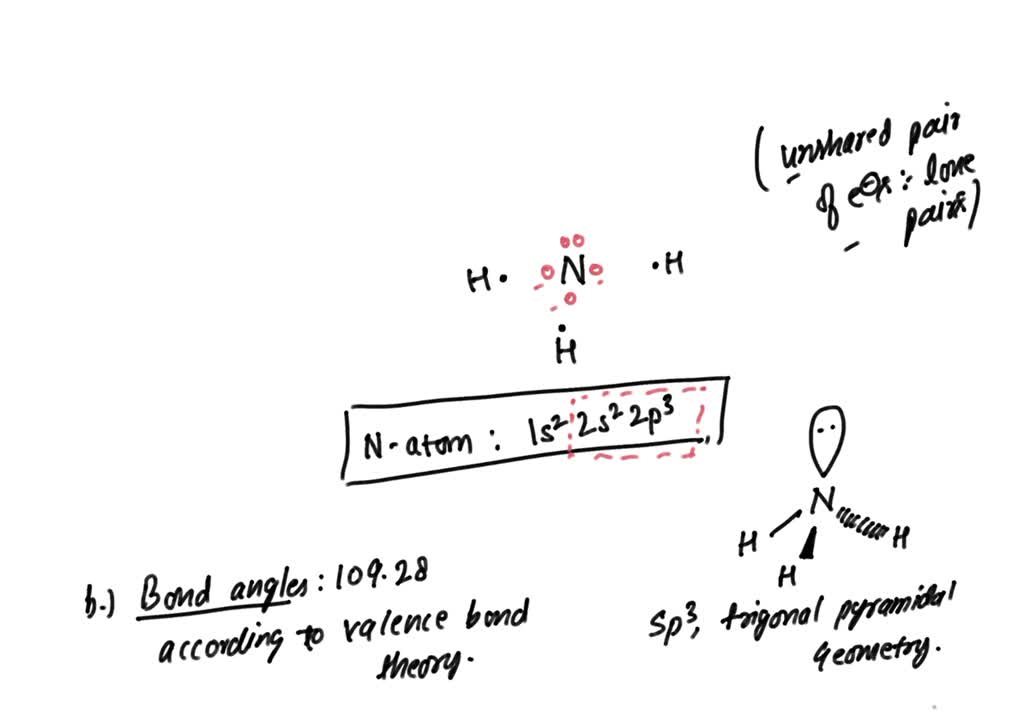 (unshared pair
of e⊖s : lone
pairs)
H· N ·H
H
N-atom : 1s² 2s² 2p³
N
H H
H
b.) Bond angles : 109.28
according to valence bond
theory.
sp³, trigonal pyramidal
geometry.